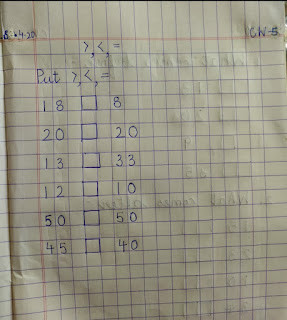 CW-5
>, <, =
Put >, <, =
18 □ 8
20 □ 20
13 □ 33
12 □ 10
50 □ 50
45 □ 40